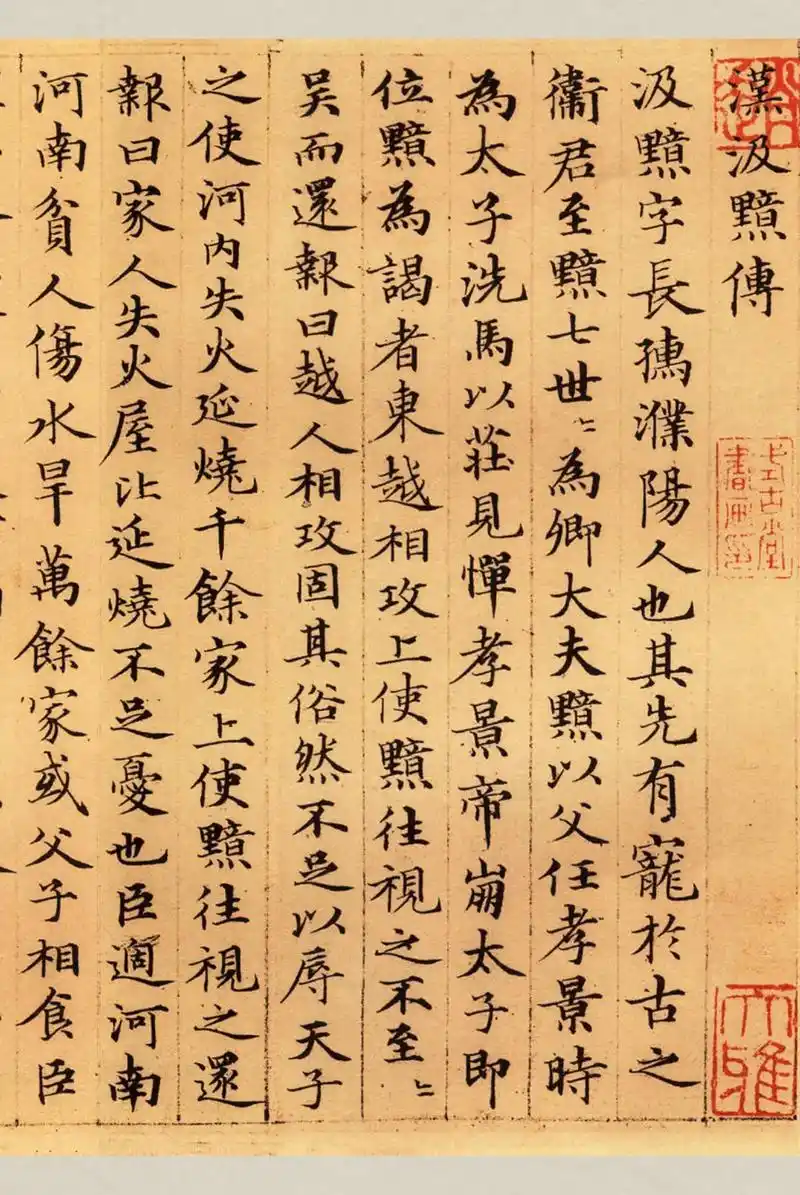 漢汲黯傳
汲黯字長孺濮陽人也其先有寵於古之
衞君至黯七世〻為卿大夫黯以父任孝景時
為太子洗馬以莊見憚孝景帝崩太子即
位黯為謁者東越相攻上使黯往視之不至〻
吴而還報曰越人相攻固其俗然不足以辱天子
之使河内失火延燒千餘家上使黯往視之還
報曰家人失火屋比延燒不足憂也臣適河南
河南貧人傷水旱萬餘家或父子相食臣
大雅